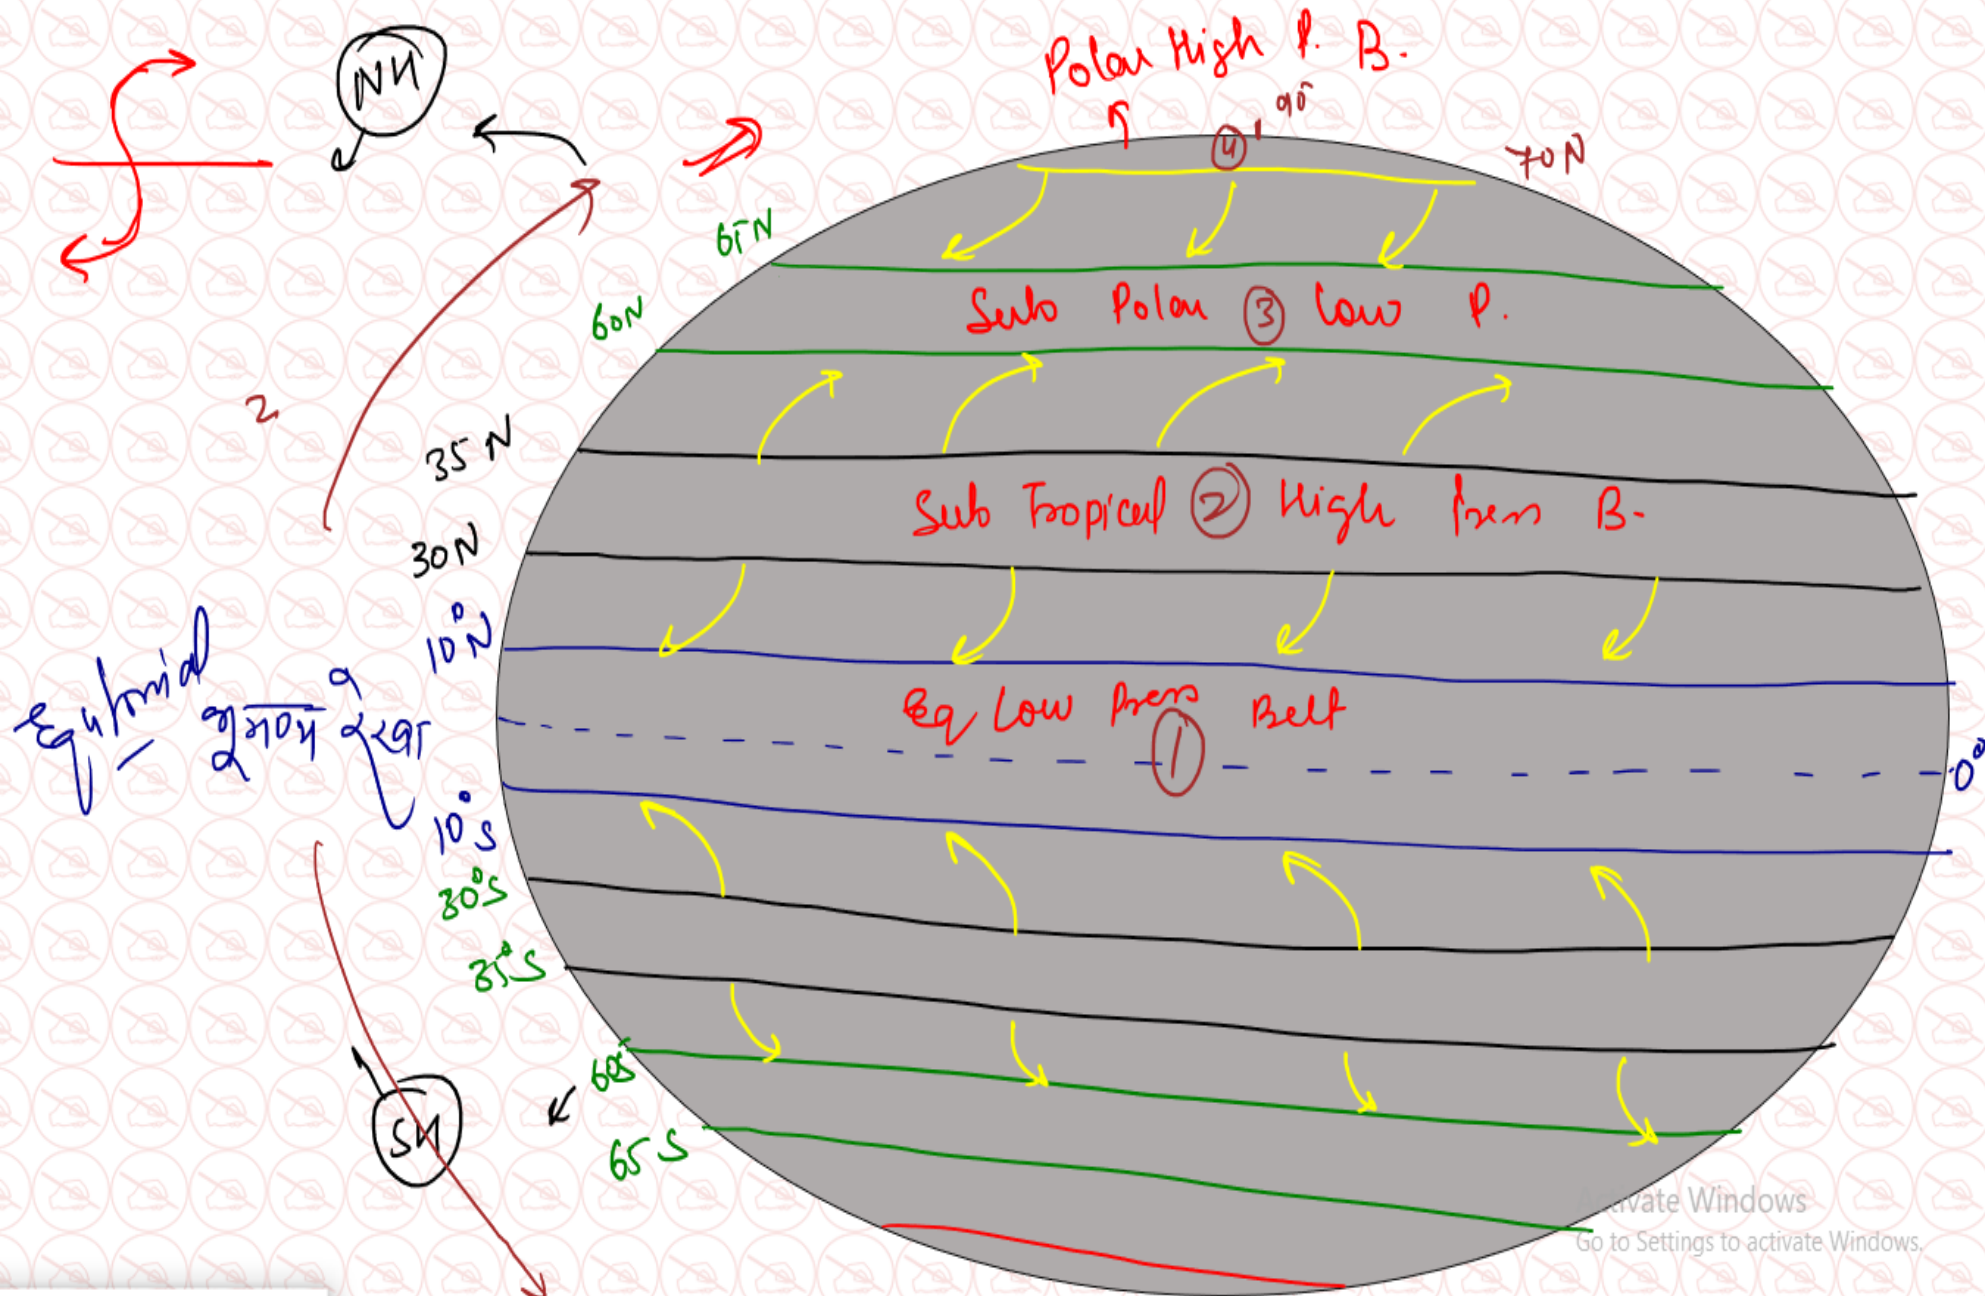 Polar High P. B.
NH
④ 90°
70N
65N
Sub Polar ③ Low P.
60N
2
35 N
Sub Tropical ② High Press B.
30N
10°N
Eq Low Press Belt
①
0°
10°S
30°S
35°S
60S
SH
65 S
Activate Windows
Go to Settings to activate Windows.